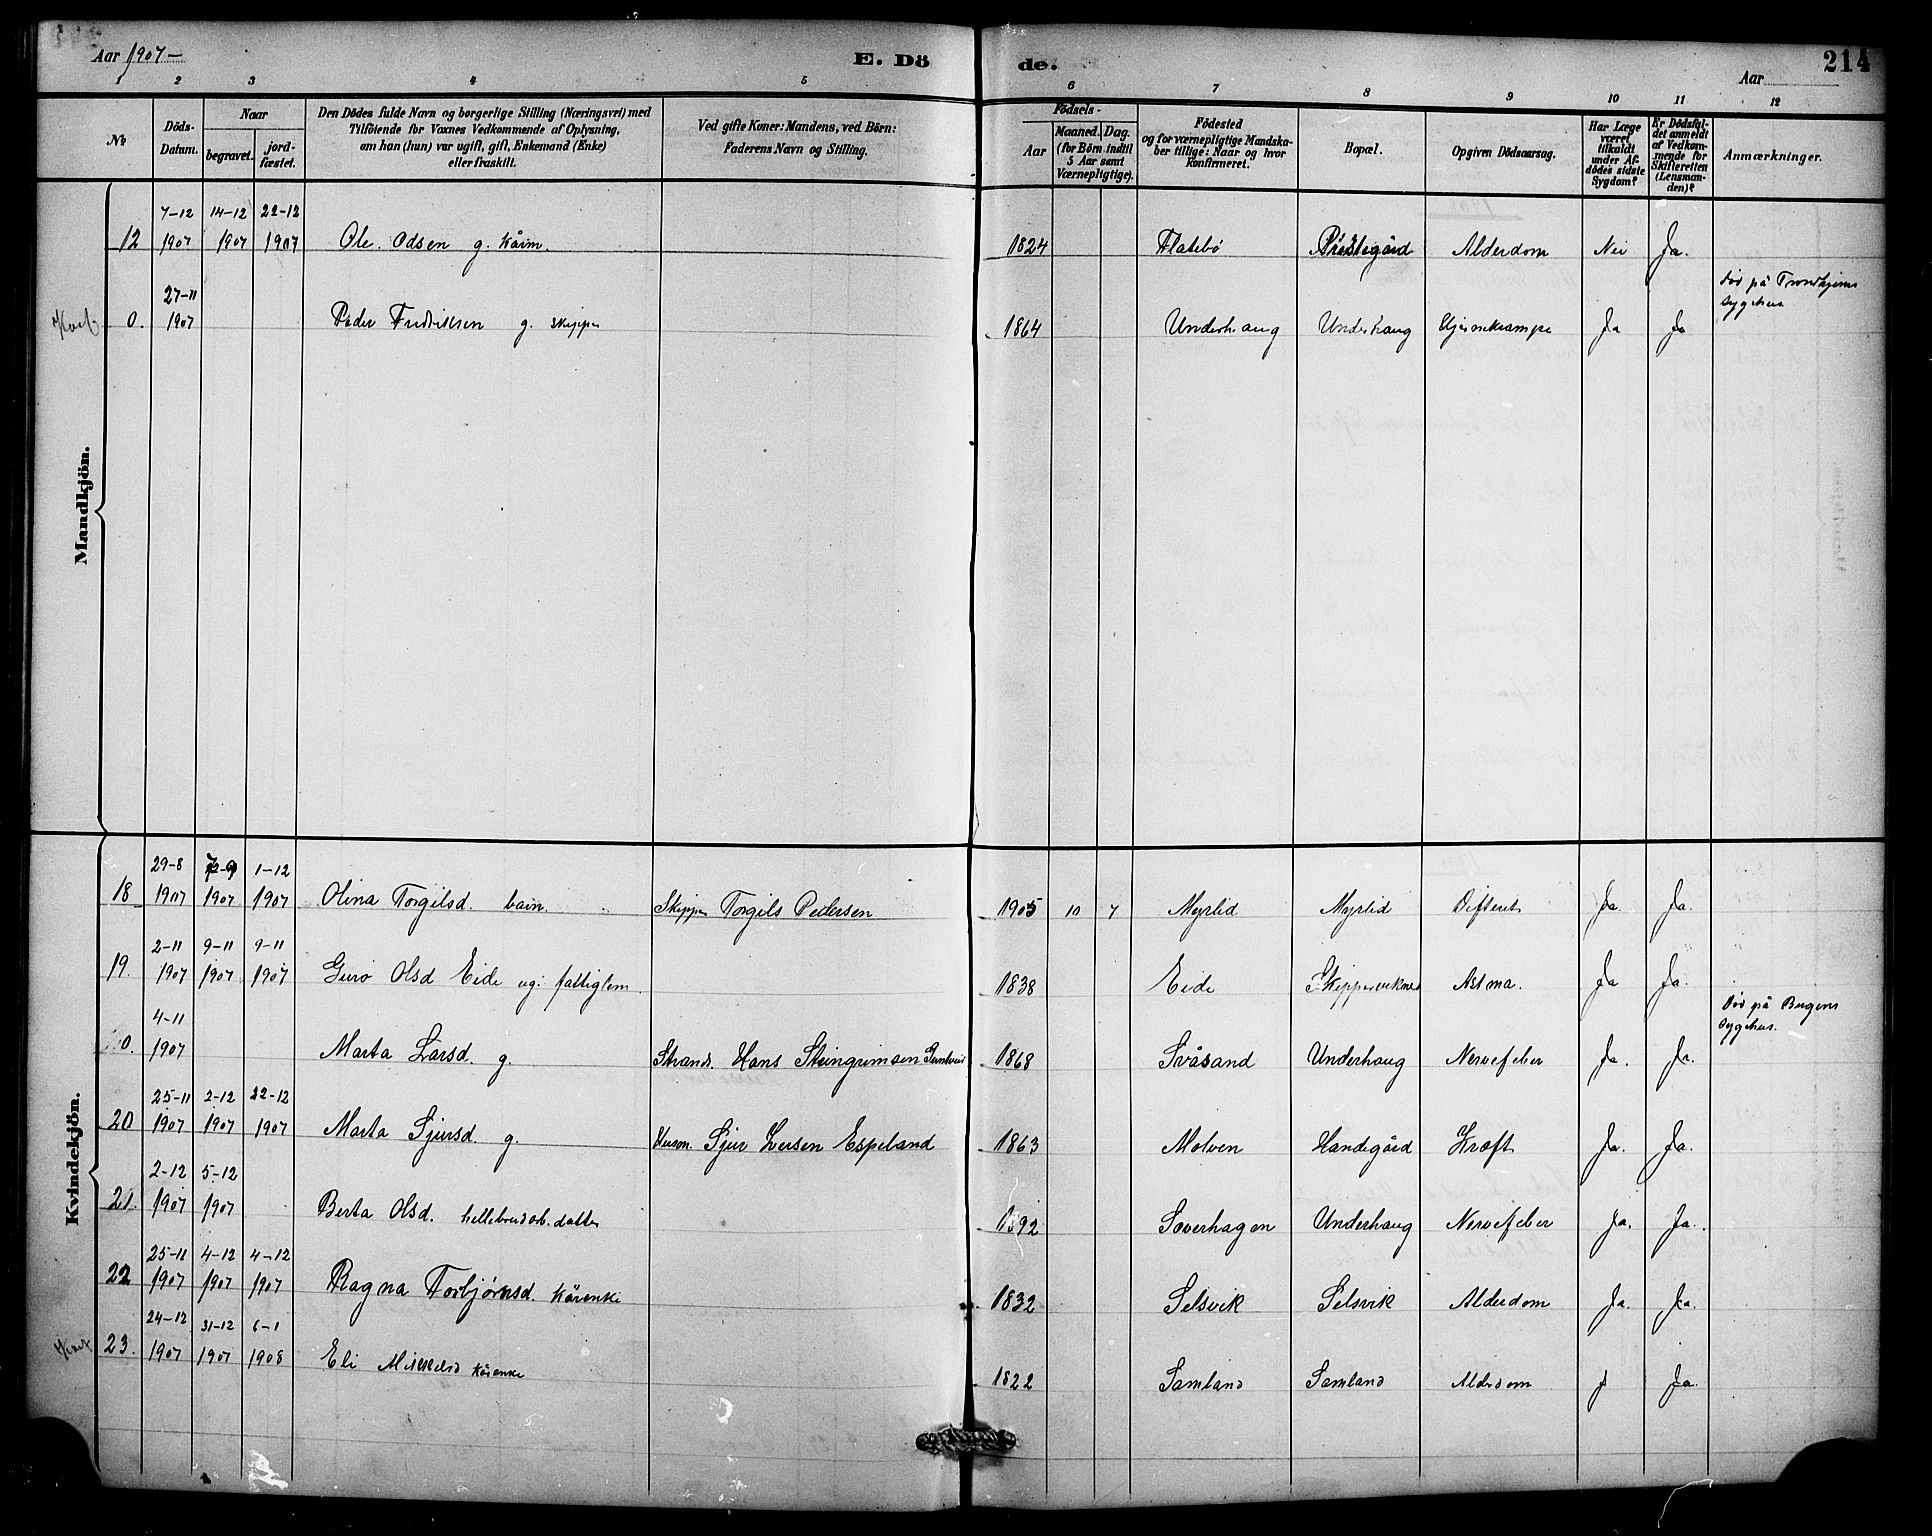 Aar 1907 —
E. Dö
de.
Aar
214
1 2 3 4 5 6 7 8 9 10 11 12
No
Döds-
Datum.
Naar
begravet.
jord-
fæstet.
Den Dödes fulde Navn og borgerlige Stilling (Næringsvei) med
Tilföiende for Voxnes Vedkommende af Oplysning,
om han (hun) var ugift, gift, Enkemand (Enke)
eller fraskilt.
Ved gifte Koner: Mandens, ved Börn:
Faderens Navn og Stilling.
Födsels-
Aar
Maaned. Dag.
(for Börn indtil
5 Aar samt
Værnepligtige).
Födested
og for værnepligtige Mandska-
ber tillige: Naar og hvor
Konfirmeret.
Bopæl.
Opgiven Dödsaarsag.
Har Læge
været
tilkaldt
under Af-
dödes sidste
Sygdom?
Er Dödsfal-
det anmeldt
af Vedkom-
mende for
Skifteretten
(Lensman-
den)?
Anmærkninger.
Mandkjön.
7-12 14-12 22-12
12 1907 1907 1907 Ole Odsen g. kårm. 1824 Flatebø Præstegård Alderdom Nei Ja.
27-11
død på Trondhjems
sygehus
0. 1907 Peder Fredriksen g. skipper 1864 Underhaug Underhaug Hjernekrampe Ja Ja
Kvindekjön.
29-8 1-12
18 1907 1907 1907 Olina Torgilsd. barn. Skipper Torgils Pedersen 1905 10 7 Myrlid Myrlid Difterit Ja. Ja.
2-11 9-11 9-11
19. 1907 1907 1907 Guro Olsd Eide ug. fattiglem. 1838 Eide Astma. Ja Ja.
4-11
Død på Bergens
Sygehus.
0. 1907 Marta Larsd. g. Strands. Hans Steingrimsen 1868 Svåsand Underhaug Nervefeber Ja. Ja.
25-11 2-12 22-12
20 1907 1907 1907 Marta Sjursd. g. Husm. Sjur Larsen Espeland 1863 Molven Handegård Kræft Ja. Ja.
2-12 5-12
21. 1907 1907 Berta Olsd. hellebrudarb. datter 1892 Soverhagen Underhaug Nervefeber Ja. Ja.
25-11 4-12 4-12
22 1907 1907 1907 Ragna Torbjørnsd. kårenke 1832 Selsvik Selsvik Alderdom Ja. Ja.
24-12 31-12 6-1
23. 1907 1907 1908 Eli Mikkelsd kårenke 1822 Samland Samland Alderdom J Ja.